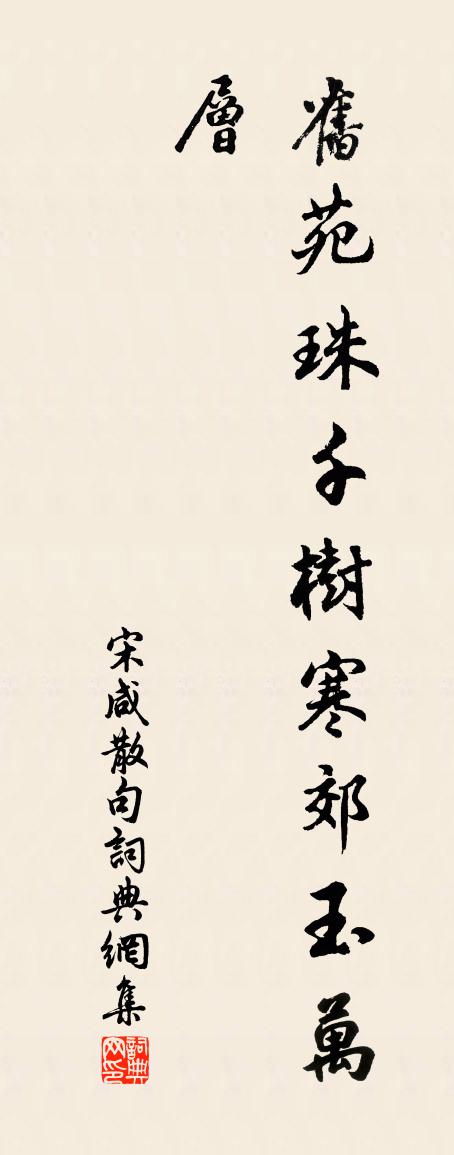 舊苑珠千樹寒郊玉萬
層
宋咸散句詞典網集
詞典网印